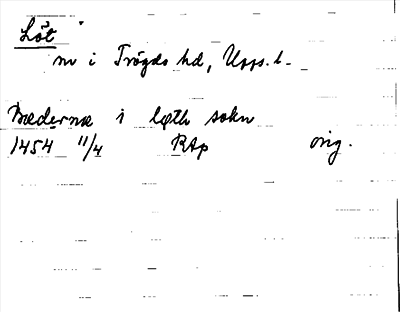 Löt
sn i Trögds hd, Upps. l.
Mædernæ i løth sokn
1454 11/4 RAp orig.